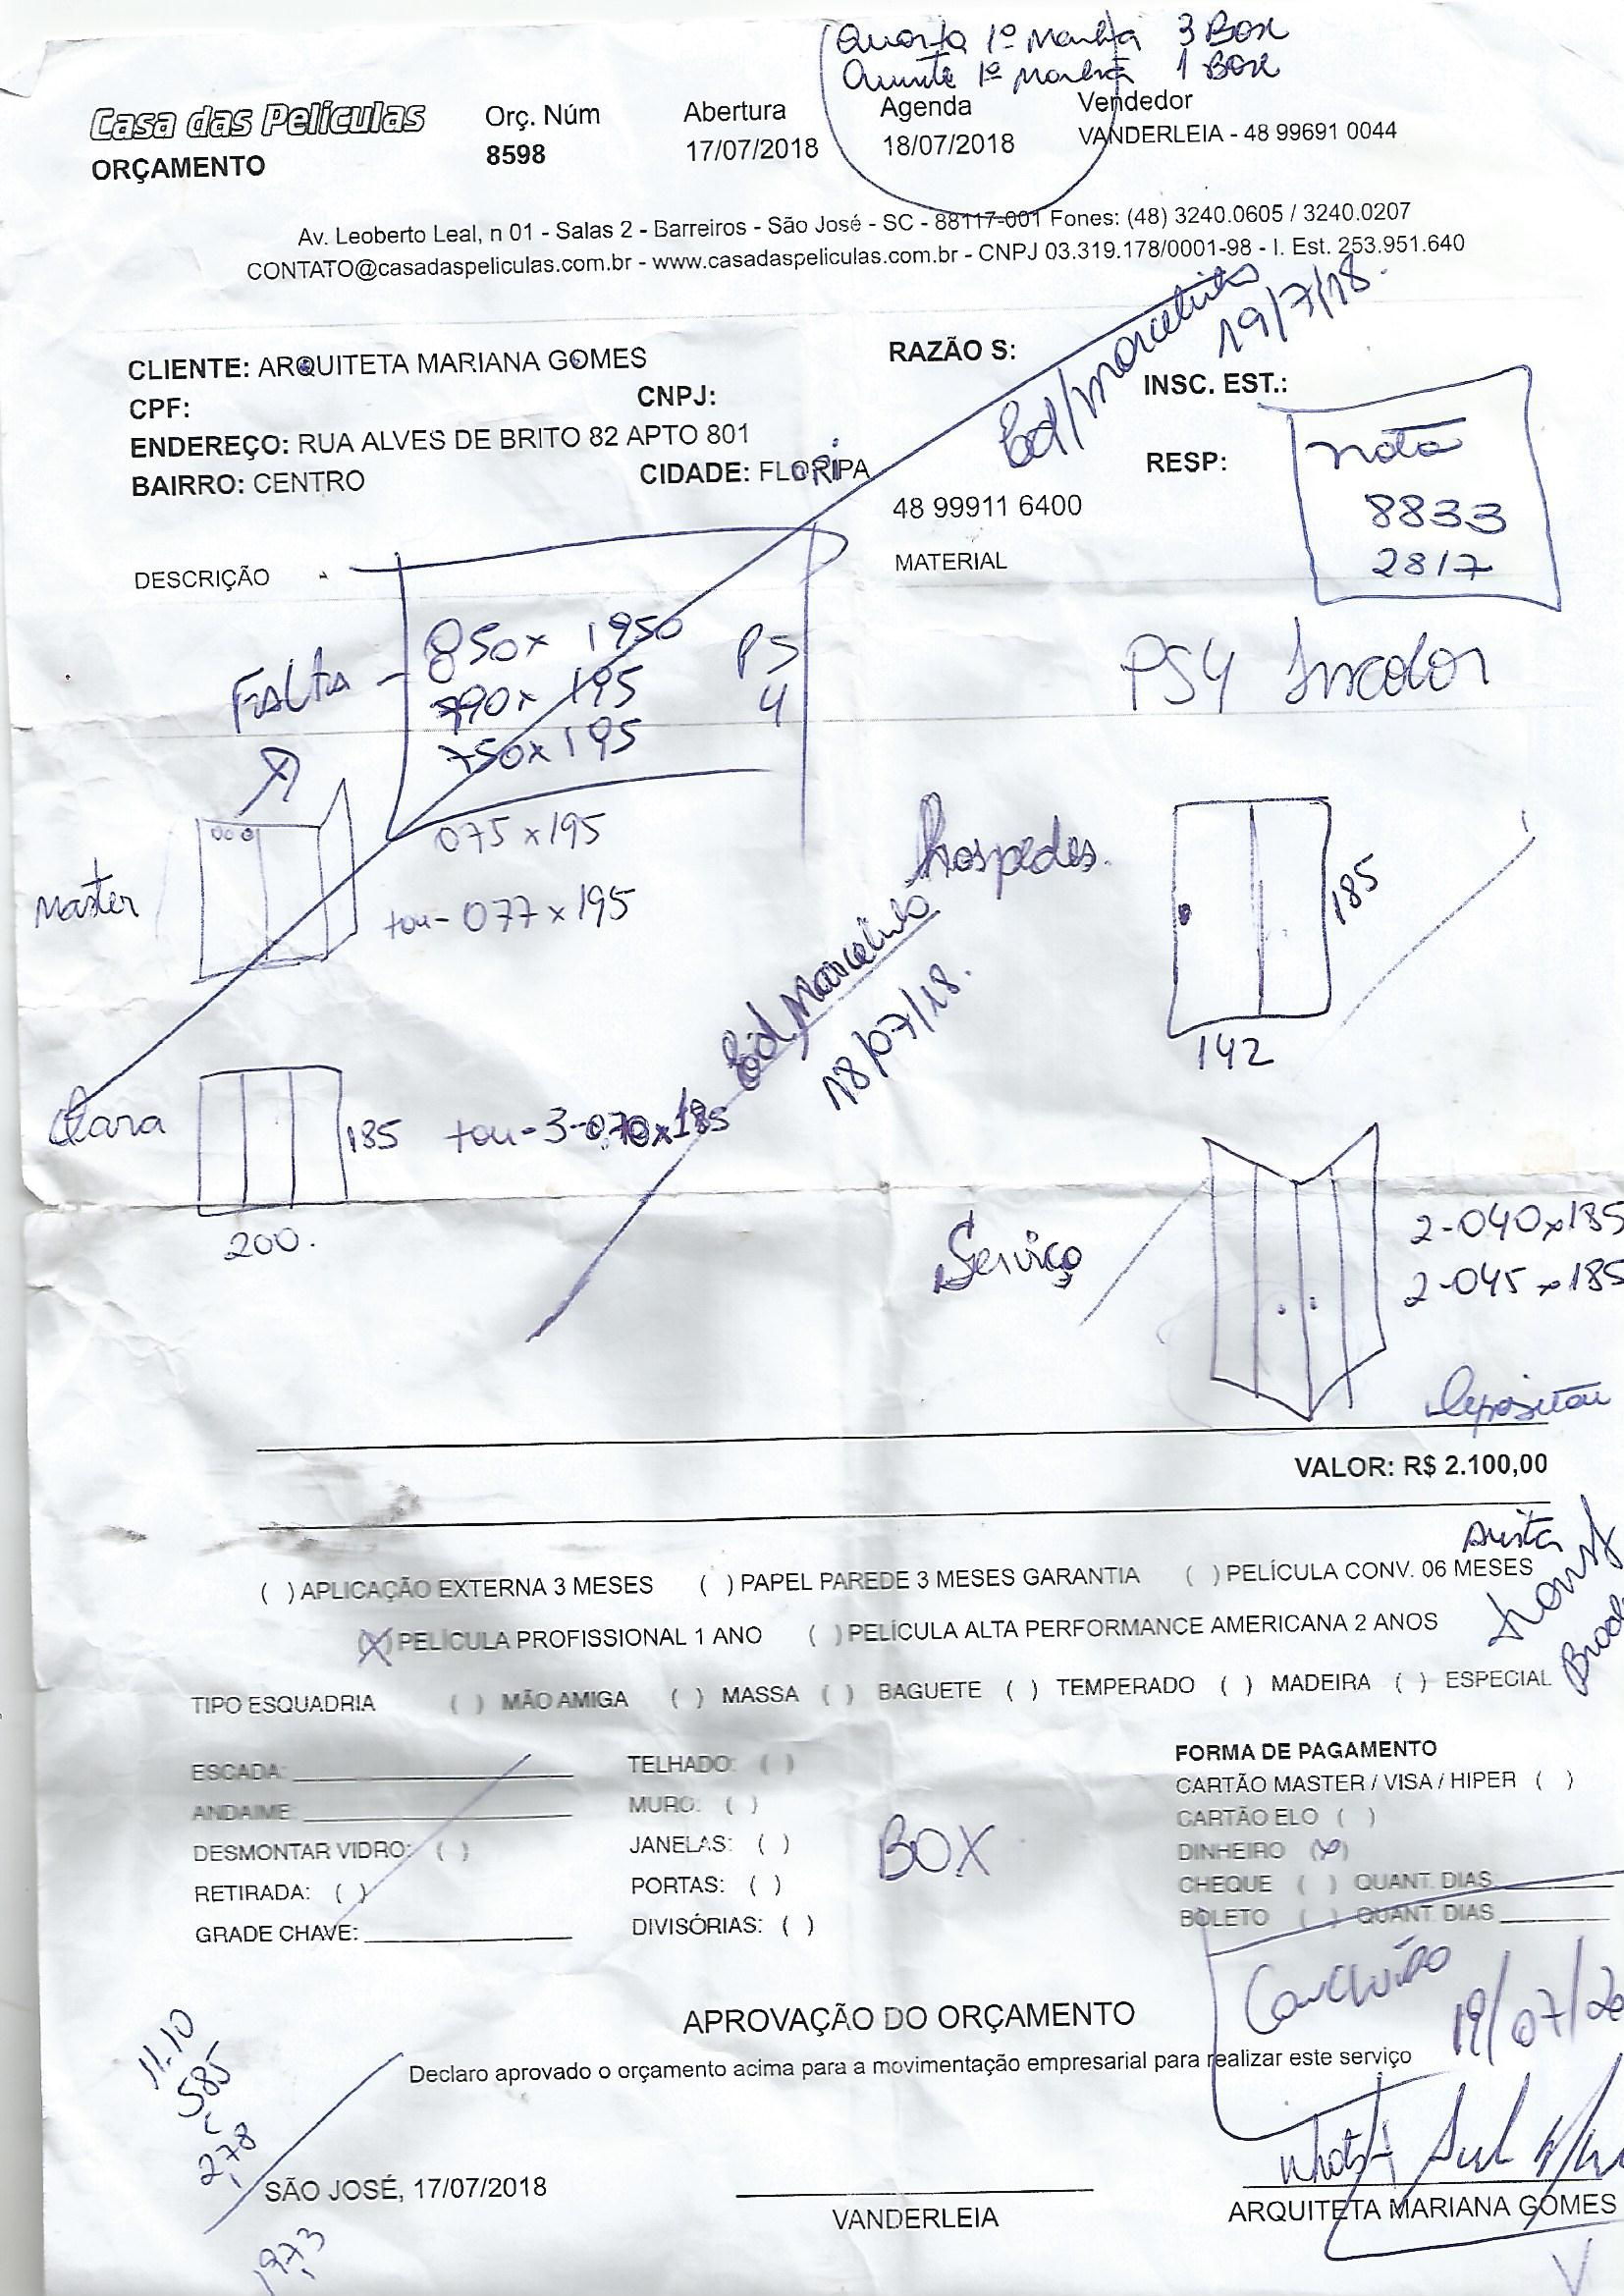 Quarta 1º Manhã 3 Box
Quinta 1º Manhã 1 Box
Casa das Películas
ORÇAMENTO
Orç. Núm
8598
Abertura
17/07/2018
Agenda
18/07/2018
Vendedor
VANDERLEIA - 48 99691 0044
Av. Leoberto Leal, n 01 - Salas 2 - Barreiros - São José - SC - 88117-001 Fones: (48) 3240.0605 / 3240.0207
CONTATO@casadaspeliculas.com.br - www.casadaspeliculas.com.br - CNPJ 03.319.178/0001-98 - I. Est. 253.951.640
Ed/Marcelinho
19/7/18.
CLIENTE: ARQUITETA MARIANA GOMES
RAZÃO S:
CPF:
CNPJ:
INSC. EST.:
ENDEREÇO: RUA ALVES DE BRITO 82 APTO 801
BAIRRO: CENTRO
CIDADE: FLORIPA
RESP:
48 99911 6400
nota
8833
2817
DESCRIÇÃO
MATERIAL
FALTA - 850x 1950
790x 195
750x 195
PS
4
PS4 Incolor
Master
075 x 195
077 x 195
hospedes.
185
142
Ed/Marcelinho
18/07/18.
Clara
185
3-070x185
200.
Serviço
2-040x185
2-045x185
Depositar
VALOR: R$ 2.100,00
( ) APLICAÇÃO EXTERNA 3 MESES ( ) PAPEL PAREDE 3 MESES GARANTIA ( ) PELÍCULA CONV. 06 MESES
(X) PELÍCULA PROFISSIONAL 1 ANO ( ) PELÍCULA ALTA PERFORMANCE AMERICANA 2 ANOS
TIPO ESQUADRIA ( ) MÃO AMIGA ( ) MASSA ( ) BAGUETE ( ) TEMPERADO ( ) MADEIRA ( ) ESPECIAL
ESCADA:
ANDAIME:
DESMONTAR VIDRO: ( )
RETIRADA: ( )
GRADE CHAVE:
TELHADO: ( )
MURO: ( )
JANELAS: ( )
PORTAS: ( )
DIVISÓRIAS: ( )
BOX
FORMA DE PAGAMENTO
CARTÃO MASTER / VISA / HIPER ( )
CARTÃO ELO ( )
DINHEIRO (x)
CHEQUE ( ) QUANT. DIAS
BOLETO ( ) QUANT. DIAS
19/07/20
APROVAÇÃO DO ORÇAMENTO
Declaro aprovado o orçamento acima para a movimentação empresarial para realizar este serviço
11.10
585
278
1973
SÃO JOSÉ, 17/07/2018
VANDERLEIA
ARQUITETA MARIANA GOMES